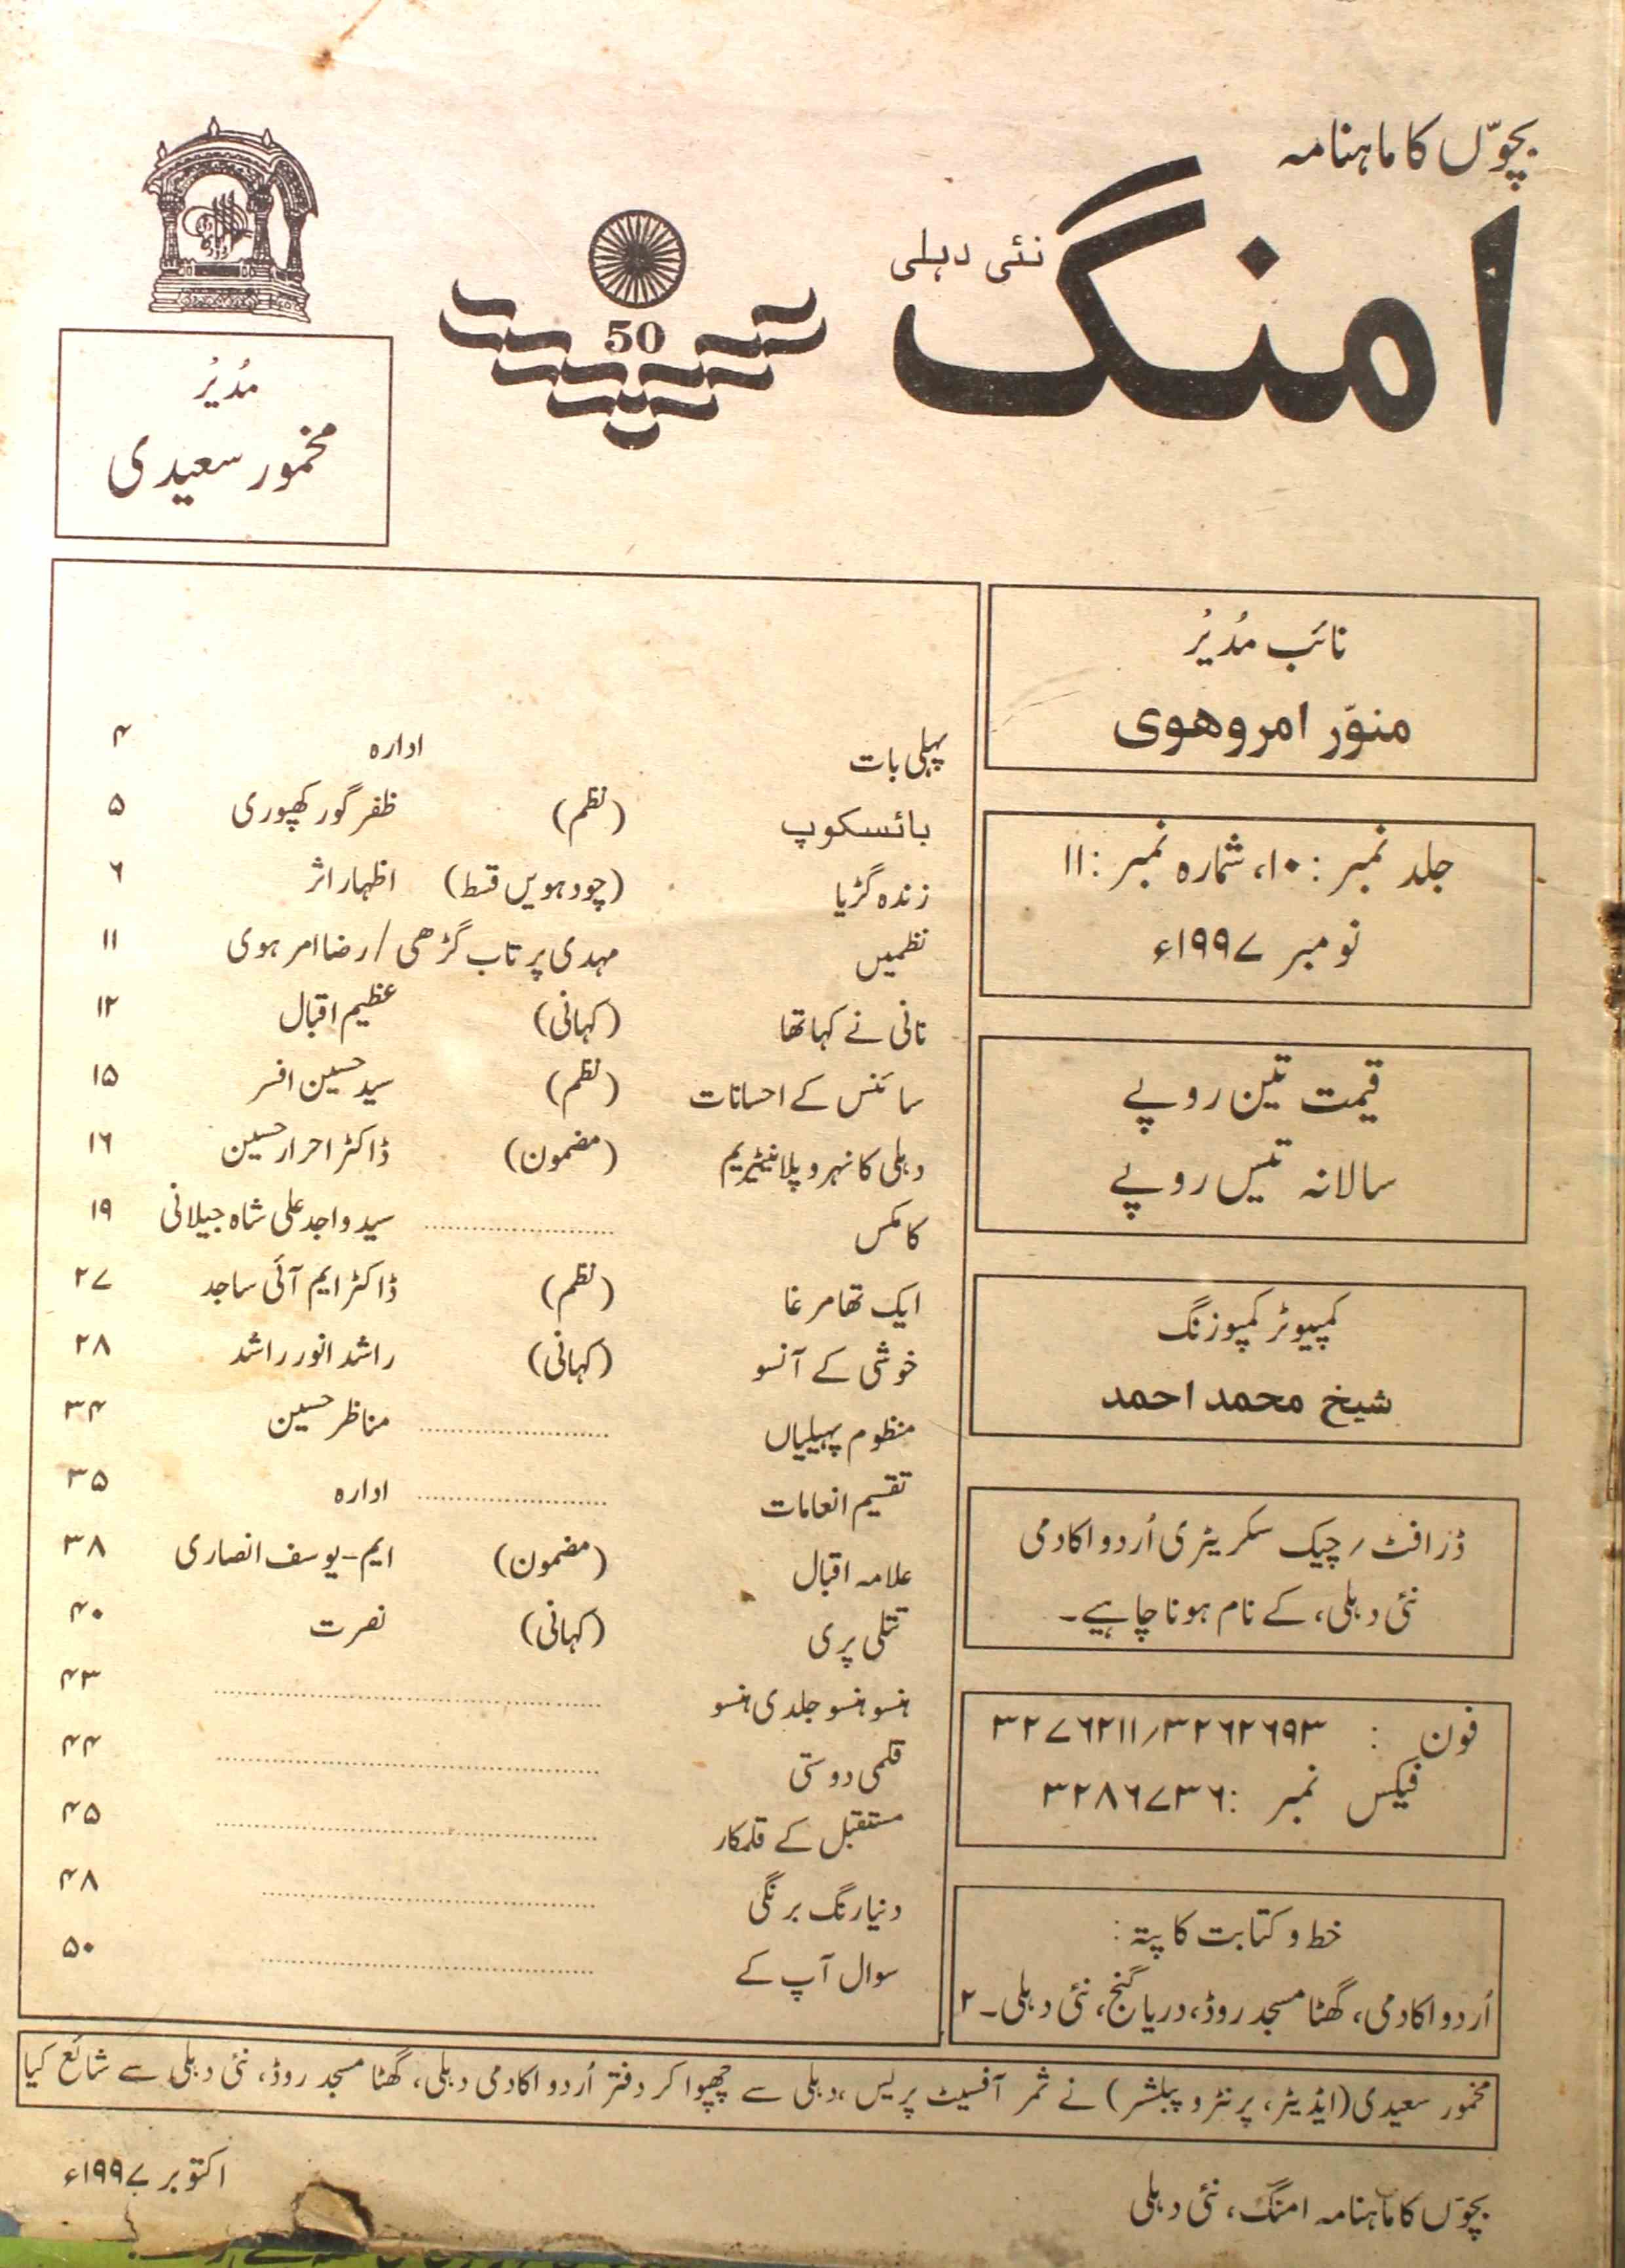 بچوّں کا ماہنامہ
اُمنگ نئی دہلی
50
مُدیُر
مخمور سعیدی
نائب مُدیُر
منوّر امروھوی
جلد نمبر : ۱۰، شمارہ نمبر : ۱۱
نومبر ۱۹۹۷ء
قیمت تین روپے
سالانہ تیس روپے
کمپیوٹر کمپوزنگ
شیخ محمد احمد
ڈرافٹ / چیک سکریٹری اُردو اکادمی
نئی دہلی، کے نام ہونا چاہیے۔
فون : ۳۲۷۶۲۱۱/۳۲۶۲۶۹۳
فیکس نمبر : ۳۲۸۶۷۳۶
خط و کتابت کا پتہ :
اُردو اکادمی، گھٹا مسجد روڈ، دریا گنج، نئی دہلی۔۲
پہلی بات ادارہ ۴
بائسکوپ (نظم) ظفر گورکھپوری ۵
زندہ گڑیا (چودہویں قسط) اظہار اثر ۶
نظمیں مہدی پرتاب گڑھی / رضا امرہوی ۱۱
نانی نے کہا تھا (کہانی) عظیم اقبال ۱۲
سائنس کے احسانات (نظم) سید حسین افسر ۱۵
دہلی کا نہرو پلانیٹیریم (مضمون) ڈاکٹر احرار حسین ۱۶
کامکس .................... سید واجد علی شاہ جیلانی ۱۹
ایک تھا مرغا (نظم) ڈاکٹر ایم آئی ساجد ۲۷
خوشی کے آنسو (کہانی) راشد انور راشد ۲۸
منظوم پہیلیاں .................... مناظر حسین ۳۴
تقسیم انعامات .................... ادارہ ۳۵
علامہ اقبال (مضمون) ایم-یوسف انصاری ۳۸
تتلی پری (کہانی) نصرت ۴۰
ہنسو ہنسو جلدی ہنسو .................... ۴۳
قلمی دوستی .................... ۴۴
مستقبل کے قلمکار .................... ۴۵
دنیا رنگ برنگی .................... ۴۸
سوال آپ کے .................... ۵۰
مخمور سعیدی (ایڈیٹر، پرنٹر و پبلشر) نے ثمر آفسیٹ پریس، دہلی سے چھپوا کر دفتر اُردو اکادمی دہلی، گھٹا مسجد روڈ، نئی دہلی سے شائع کیا
بچوّں کا ماہنامہ امنگ، نئی دہلی
اکتوبر ۱۹۹۷ء